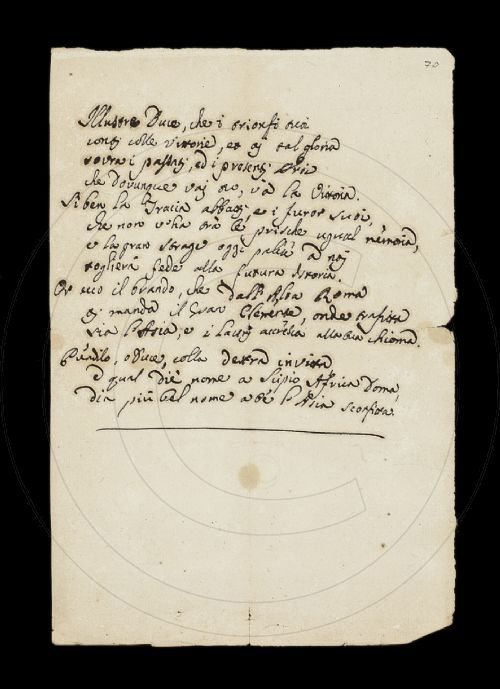 70
Illustre Duce, che i trionfi tuoi
conti colle Vittorie, et ai tal gloria
sovra i passati, ed i presenti Eroi
che Dovunque vai tu, va la Vittoria.
Si ben la Tracia abbatti, e i furor suoi,
che non v'ha trà le prische ugual memoria,
e la gran strage oggi palese a noi
toglierà fede alla futura istoria.
Or ecco il brando, che dall'Alta Roma
ti manda il Gran Clemente, onde trafitta
sia l'Asia, e i Lauri accresca alla tua chioma.
Prendilo, o Duce, colla destra invitta
e qual diè nome a Scipio Africa Doma,
dia più bel nome a te l'Asia sconfitta.